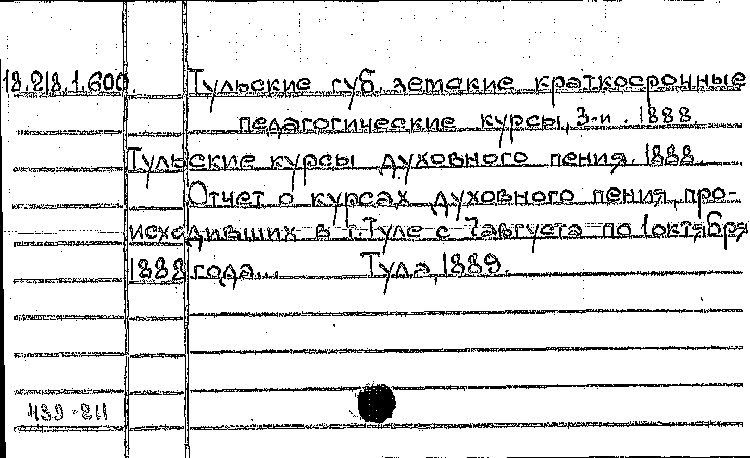 18.218.1.600. Тульские губ. земские краткосрочные
педагогические курсы, 3-и. 1888.
Тульские курсы духовного пения. 1888.
Отчет о курсах духовного пения, про-
исходивших в г. Туле с 7 августа по 1 октября
1888 года... Тула, 1889.
439-211